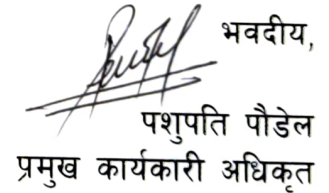 भवदीय,
पशुपति पौडेल
प्रमुख कार्यकारी अधिकृत